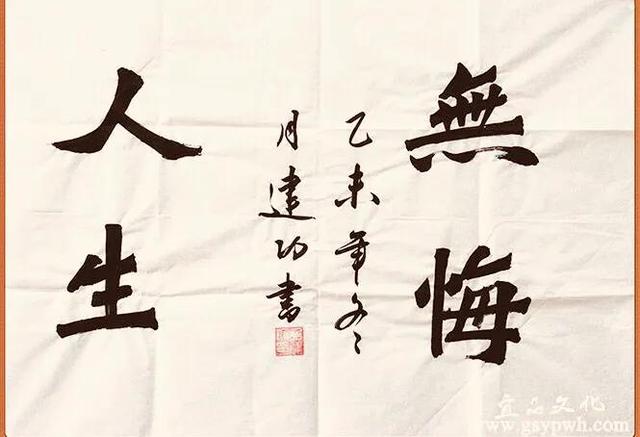 無悔
乙未年冬
月建功書
人生
宜品文化
www.gsypwh.com